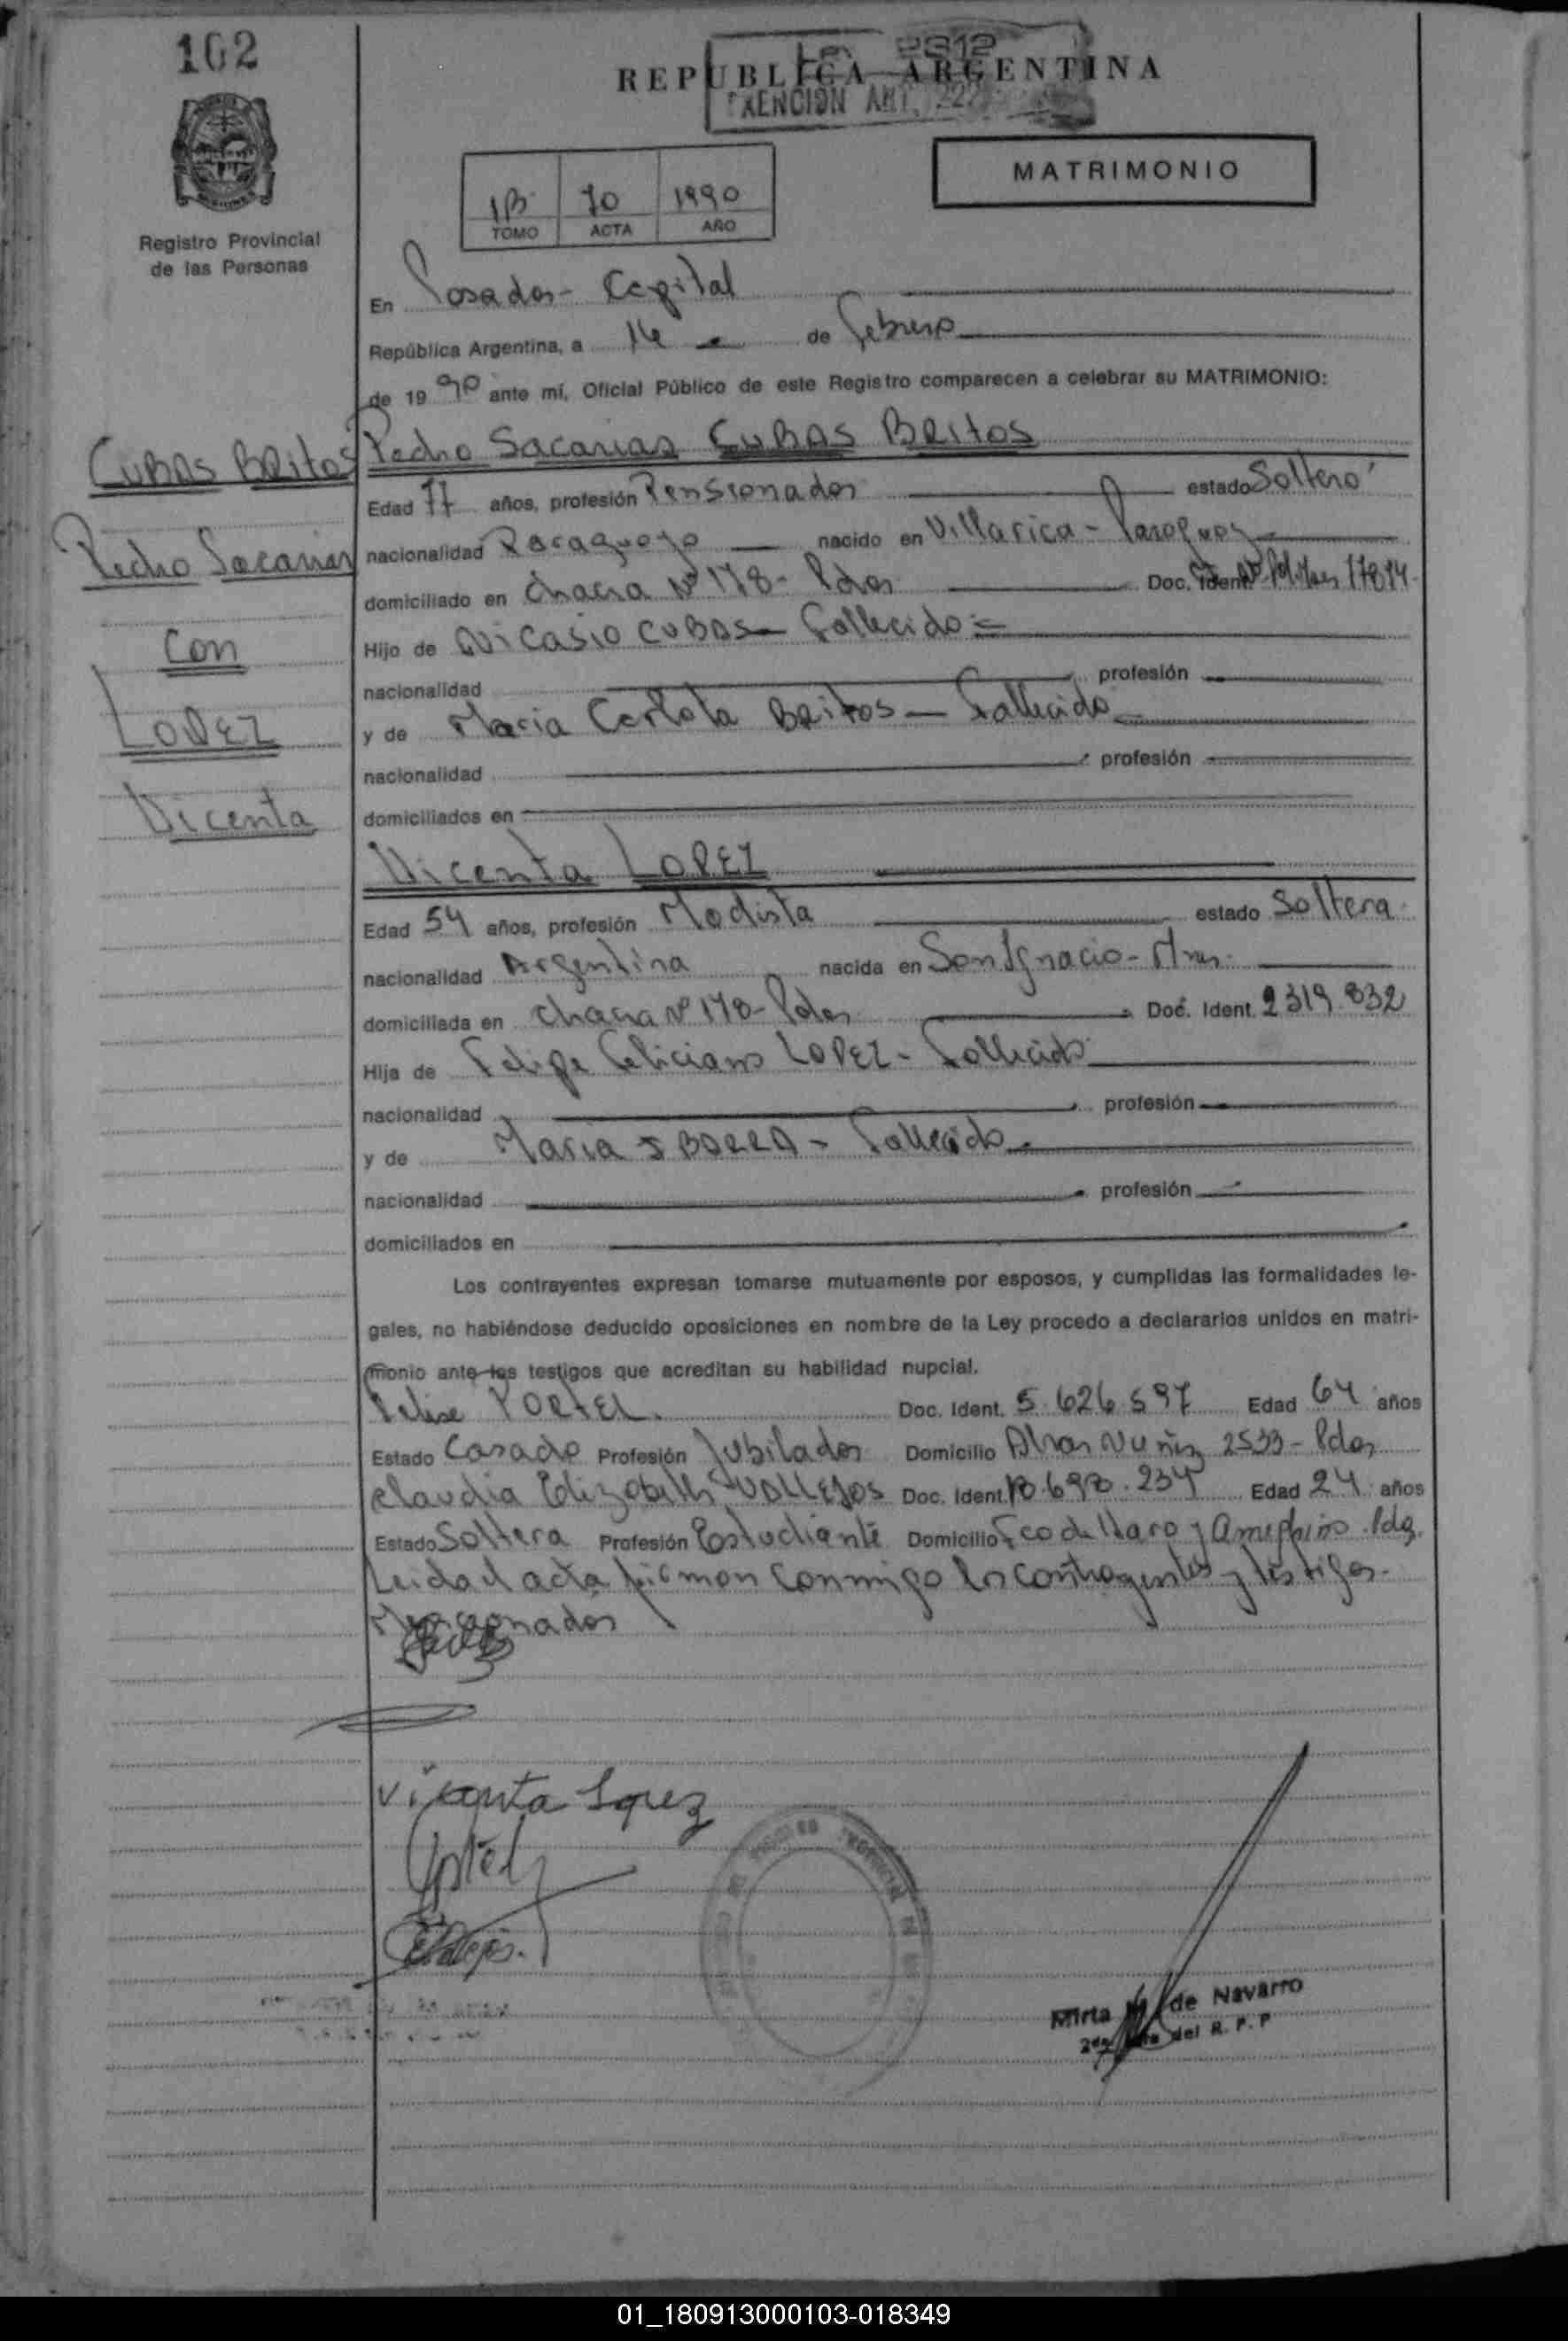 102
REPUBLICA ARGENTINA
EXENCION ART. 222
MATRIMONIO
1B 70 1990
TOMO ACTA AÑO
Registro Provincial
de las Personas
En Posadas - Capital
República Argentina, a 14 de Febrero
de 1990 ante mí, Oficial Público de este Registro comparecen a celebrar su MATRIMONIO:
CUBAS BRITOS
Pedro Sacarias
Con
LOPEZ
Vicenta
Pedro Sacarias CUBAS BRITOS
Edad 77 años, profesión Pensionado estado Soltero
nacionalidad Paraguayo nacido en Villarica - Paraguay
domiciliado en Chacra Nº 178 - Pdas Doc. Ident. 17814
Hijo de Nicasio CUBAS - Fallecido
nacionalidad profesión
y de Maria Carlota BRITOS - Fallecido
nacionalidad profesión
domiciliados en
Vicenta LOPEZ
Edad 54 años, profesión Modista estado Soltera
nacionalidad Argentina nacida en San Ignacio - Mnes.
domiciliada en Chacra Nº 178 - Pdas Doc. Ident. 2319.832
Hija de Felipe Feliciano LOPEZ - Fallecido
nacionalidad profesión
y de Maria IBARRA - Fallecido
nacionalidad profesión
domiciliados en
Los contrayentes expresan tomarse mutuamente por esposos, y cumplidas las formalidades le-
gales, no habiéndose deducido oposiciones en nombre de la Ley procedo a declararlos unidos en matri-
monio ante los testigos que acreditan su habilidad nupcial.
PORTEL. Doc. Ident. 5.626.597 Edad 64 años
Estado Casado Profesión Jubilado Domicilio Alvar Nuñez 2533 - Pdas
Claudia Elizabeth VALLEJOS Doc. Ident. 18.698.234 Edad 24 años
Estado Soltera Profesión Estudiante Domicilio Fco de Haro y Ameghino. Pdas.
Leida el acta firman conmigo los contrayentes y testigos
Mencionados
Vicenta Lopez
Mirta de Navarro
del R. P. P
01_180913000103-018349